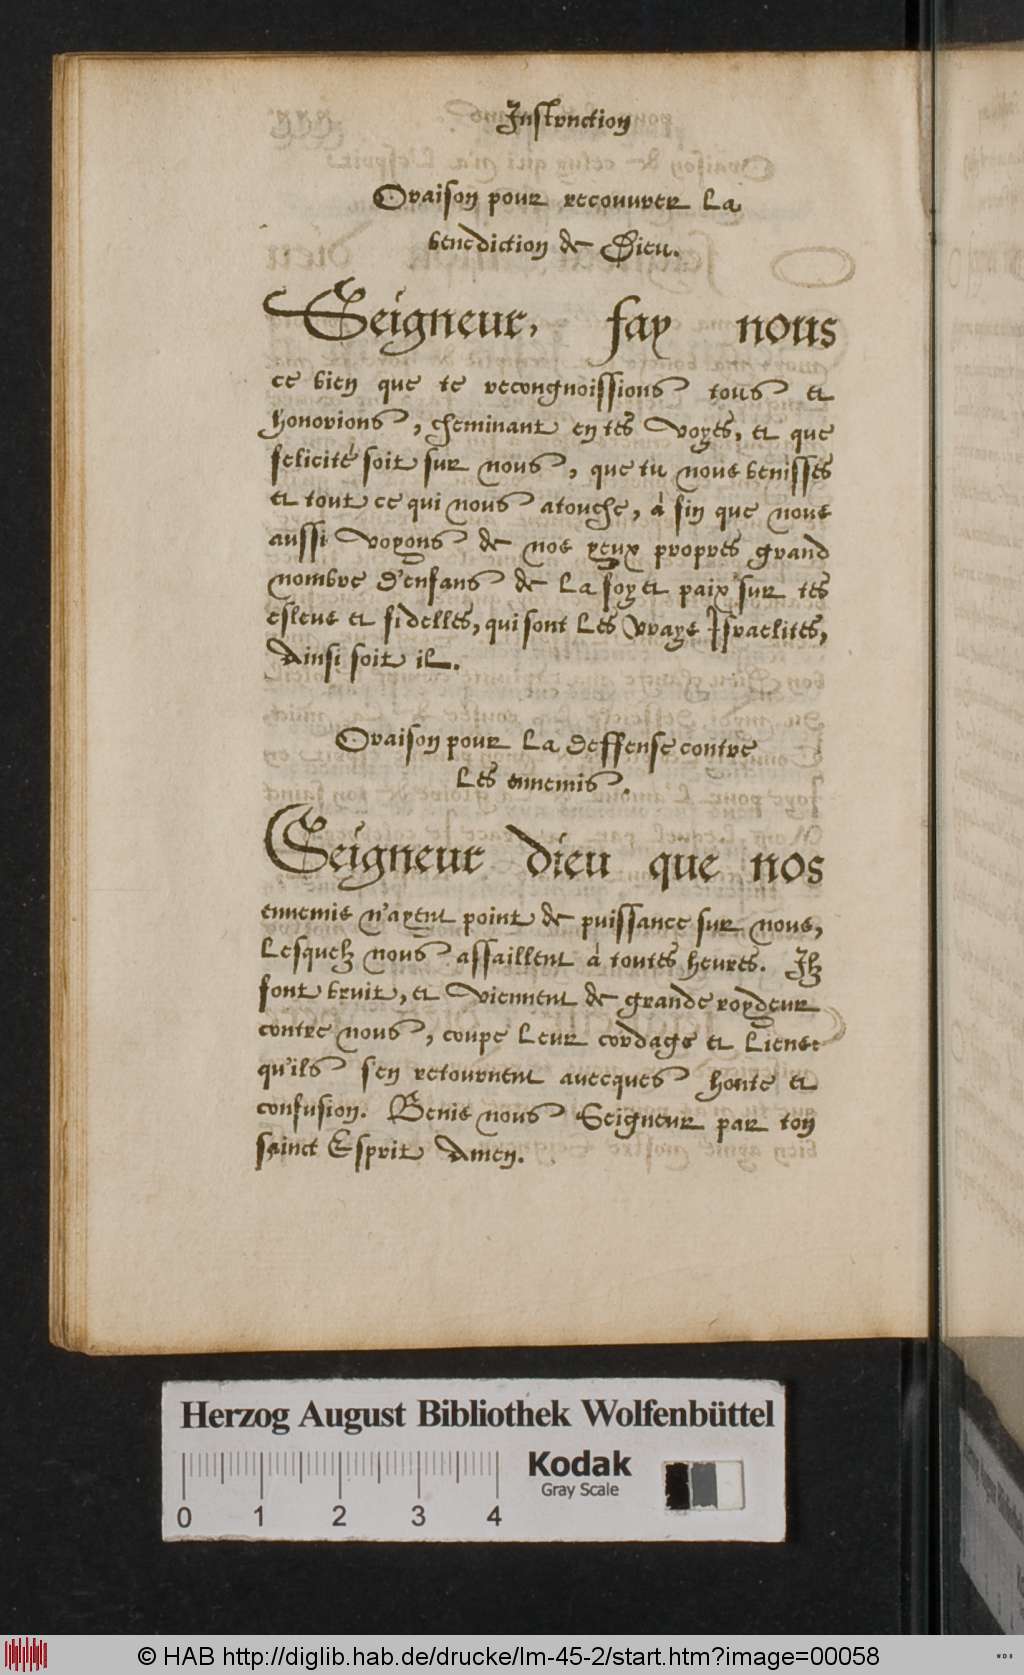 Instruction
Oraison pour recouvrer la
benediction de Dieu.
Seigneur, fay nous
ce bien que te recongnoissions tous et
honorions, cheminant en tes voyes, et que
felicité soit sur nous, que tu nous benisses
et tout ce qui nous atouche, à fin que nous
aussi voyons de nos yeux propres grand
nombre d'enfans de la foy et paix sur tes
esleus et fidelles, qui sont les vrays Israelites,
Ainsi soit il.
Oraison pour la deffense contre
les ennemis.
Seigneur dieu que nos
ennemis n'ayent point de puissance sur nous,
lesquelz nous assaillent à toutes heures. Ilz
font bruit, et viennent de grande roydeur
contre nous, coupe leur cordage et liens:
qu'ils s'en retournent avecques honte et
confusion. Benis nous Seigneur par ton
sainct Esprit Amen.
Herzog August Bibliothek Wolfenbüttel
0 1 2 3 4
Kodak
Gray Scale
© HAB http://diglib.hab.de/drucke/lm-45-2/start.htm?image=00058